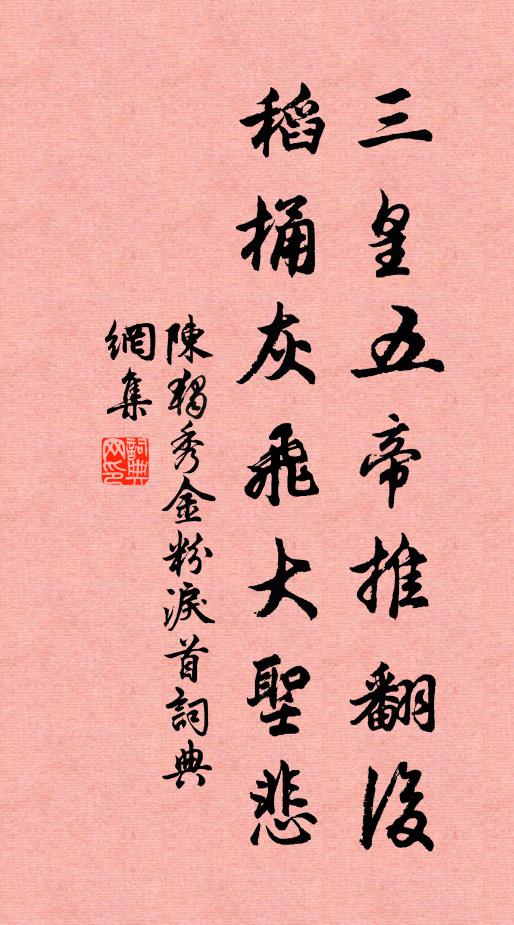 三皇五帝推翻後
稻桶灰飛大聖悲
陳獨秀金粉淚首詞典
網集
詞典
网印